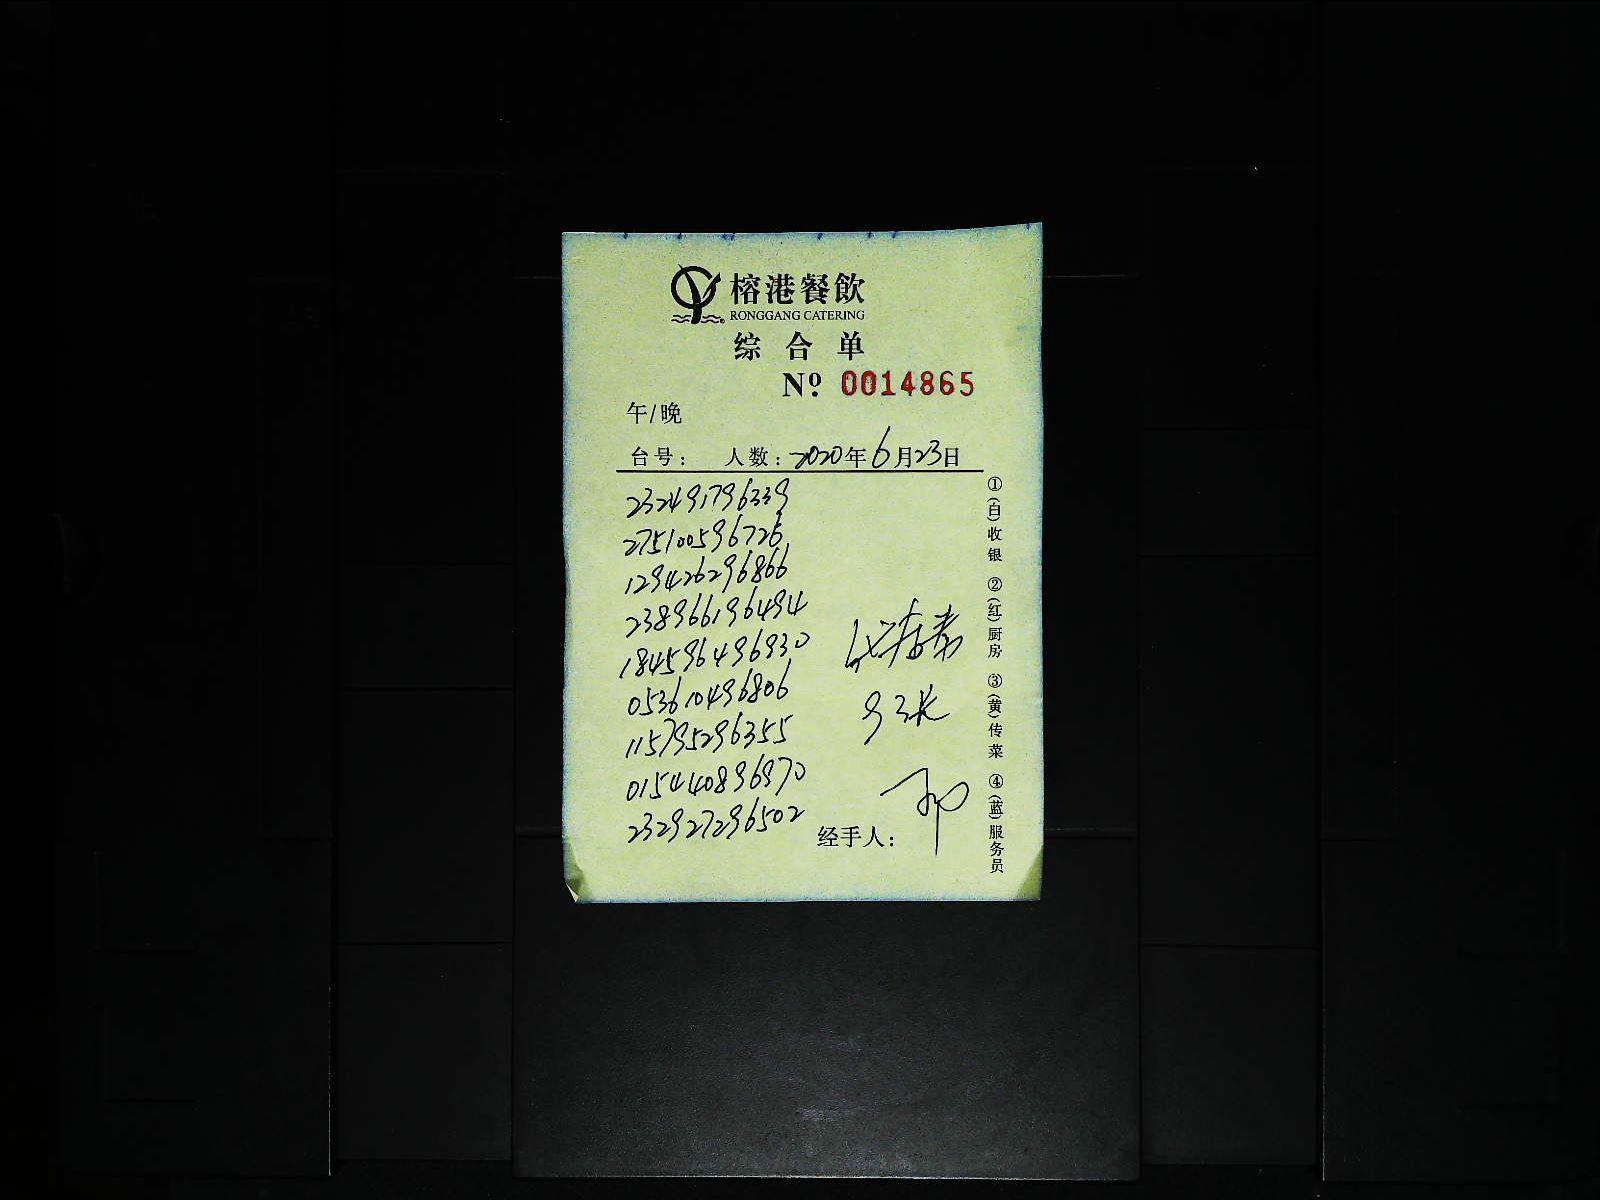 榕港餐飲
RONGGANG CATERING
综合单
Nº 0014865
午/晚
台号： 人数：2020年6月23日
232491796339
275100596726
129426296866
238966196494
184596496930
053610496806
115795296355
015440896970
232927296502
经手人：
①(白)收银 ②(红)厨房 ③(黄)传菜 ④(蓝)服务员